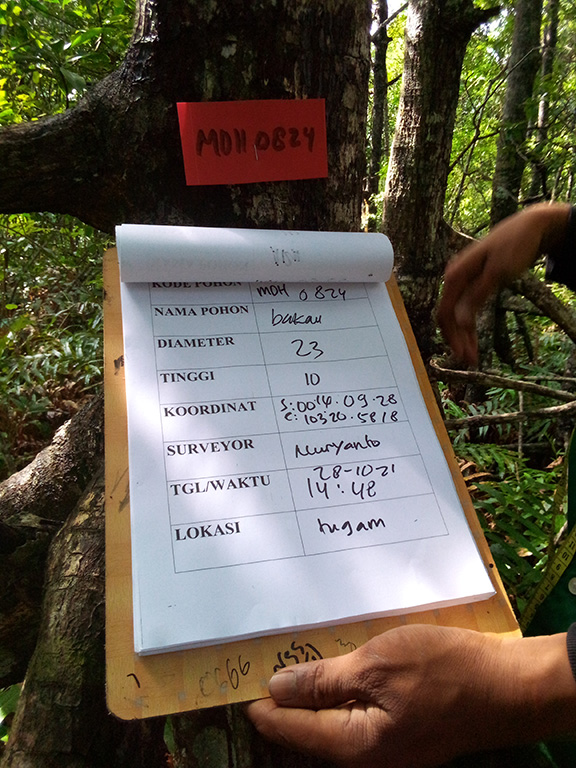 MDH 0824
KODE POHON MDH 0824
NAMA POHON bakau
DIAMETER 23
TINGGI 10
KOORDINAT S:00·14·09·28
E:103·20·5818
SURVEYOR Nuryanto
TGL/WAKTU 28-10-21
14:48
LOKASI tugam